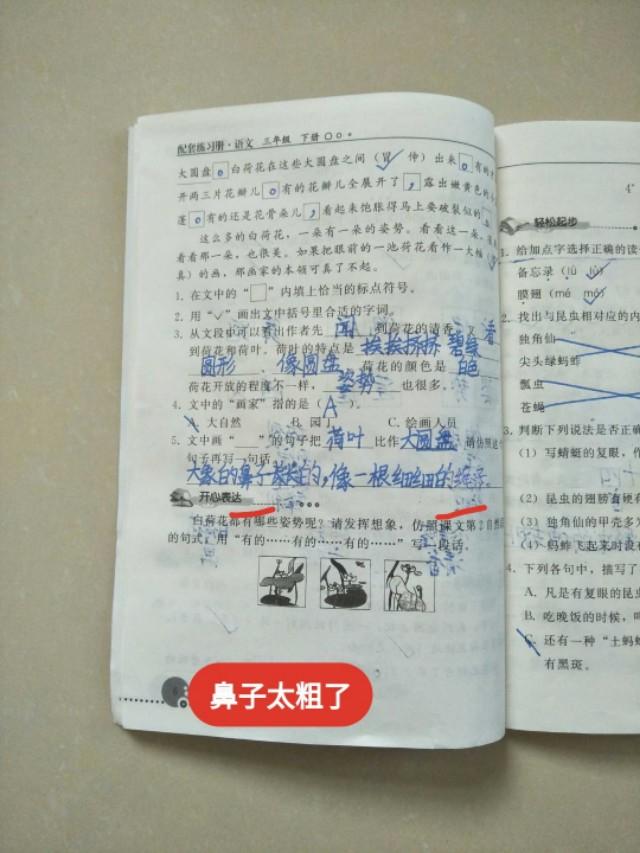 配套练习册·语文 三年级 下册
大圆盘。白荷花在这些大圆盘之间（冒✓ 伸）出来。有的才
开两三片花瓣儿。有的花瓣儿全展开了，露出嫩黄色的小
蓬。有的还是花骨朵儿，看起来饱胀得马上要破裂似的。
这么多的白荷花，一朵有一朵的姿势。看看这一朵，很
看看那一朵，也很美。如果把眼前的一池荷花看作一大幅
真）的画，那画家的本领可真了不起。
1. 在文中的“□”内填上恰当的标点符号。
2. 用“✓”画出文中括号里合适的字词。
3. 从文段中可以看出作者先 闻 到荷花的清香，又 看
到荷花和荷叶。荷叶的特点是 挨挨挤挤 碧绿
圆形、像圆盘，荷花的颜色是 白色
荷花开放的程度不一样， 姿势 也很多。
4. 文中的“画家”指的是（A）。
A. 大自然 B. 园丁 C. 绘画人员
5. 文中画“___”的句子把 荷叶 比作 大圆盘 请仿照这个
句子再写一句话。
大象的鼻子长长的，像一根细细的绳子。
开心表达
白荷花都有哪些姿势呢？请发挥想象，仿照课文第2自然段
的句式，用“有的……有的……有的……”写一段话。
6
鼻子太粗了
轻松起步
1. 给加点字选择正确的读
备忘录（lù lù）
膜翅（mé mó）
2. 找出与昆虫相对应的内
独角仙
尖头绿蚂蚱
瓢虫
苍蝇
3. 判断下列说法是否正确
（1）写蜻蜓的复眼，作
（2）昆虫的翅膀有硬
（3）独角仙的甲壳多为
（4）蚂蚱飞起来时没有
4. 下列各句中，描写了
A. 凡是有复眼的昆虫
B. 吃晚饭的时候，呜
C. 还有一种“土蚂蚱
有黑斑。